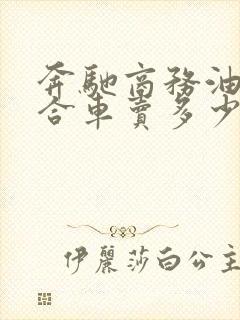 奔馳商務油
合車賣多少
伊麗莎白公主